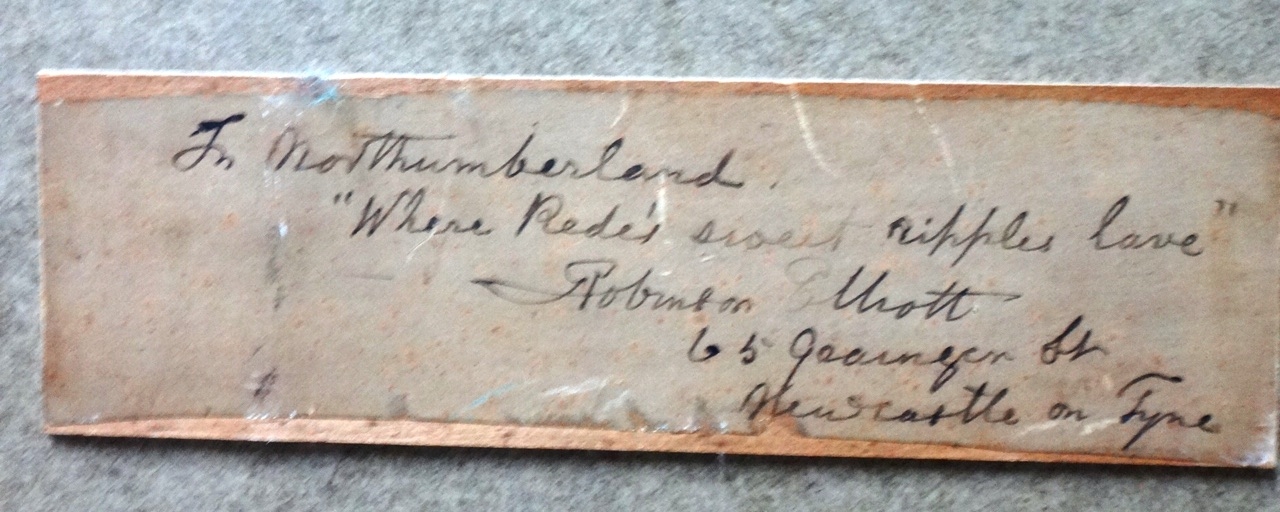 In Northumberland.
"Where Rede's sweet ripples lave"
Robinson Elliott
65 Grainger St
Newcastle on Tyne